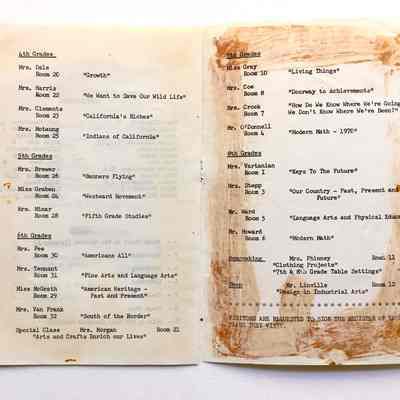 4th Grades
Mrs. Dale
Room 20 "Growth"
Mrs. Harris
Room 22 "We Want to Save Our Wild Life"
Mrs. Clements
Room 23 "California's Riches"
Mrs.
Room 25 "Indians of California"
5th Grades
Mrs. Brewer
Room 26 "Banners Flying"
Miss Graben
Room 24 "Westward Movement"
Mrs. Minar
Room 28 "Fifth Grade Studies"
6th Grades
Mrs. Pee
Room 30 "Americans All"
Mrs. Tennant
Room 31 "Fine Arts and Language Arts"
Miss McGrath "American Heritage -
Room 29 Past and Present"
Mrs. Van Frank
Room 32 "South of the Border"
Special Class Mrs. Morgan Room 21
"Arts and Crafts Enrich our Lives"
Grades
Miss Gray
Room 10 "Living Things"
Mrs. Cow
Room 8 "Doorway to Achievements"
Mrs. Crock "How Do We Know Where We're Going
Room 7 We Don't Know Where We've Been?"
Mr. O'Donnell
Room 4 "Modern Math - 1970"
8th Grades
Mrs. Vartanian
Room 1 "Keys To The Future"
Mrs. Shepp
Room 3 "Our Country - Past, Present and
Future"
Mr. Ward
Room 5 "Language Arts and Physical
Mr. Howard
Room 6 "Modern Math"
Homemaking Mrs. Phinney Room 11
"Clothing Projects"
"7th & 8th Grade Table Settings"
Shop Mr. Linville Room 12
"Design in Industrial Arts"
VISITORS ARE REQUESTED TO SIGN THE REGISTER OF
THEY VISIT.